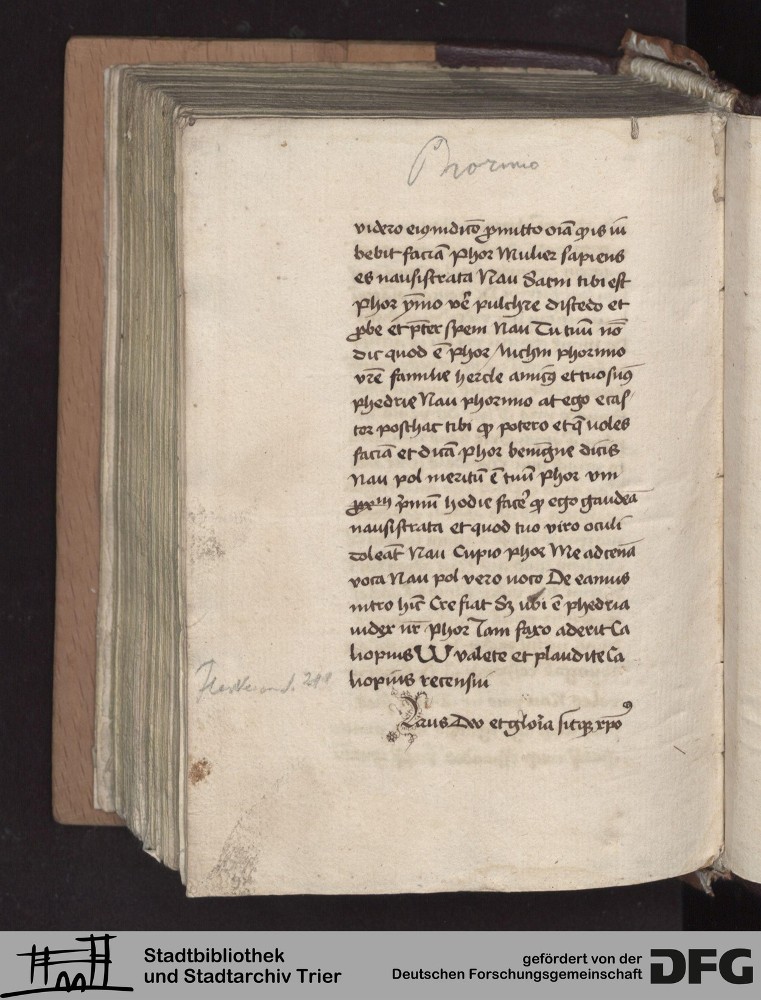 Phormio
videro eiq3 iudicio p̄mitto oīa q̄ is iu
bebit faciā Phor Mulier sapiens
es nausistrata Nau Satin tibi est
Phor ymo vē pulchre discedo et
ꝓbe et p̄ter spem Nau Tu tuū nō
dic quod ē Phor Michin phormio
vrē familie hercle amicꝰ et tuo sūo
phedrie Nau phormio at ego ecas
tor posthac tibi qđ potero et q̄ uoles
faciā et dicā Phor benigne dicis
Nau pol meritū ē tuū Phor vin
p̄mū hodie facē qđ ego gaudeā
nausistrata et quod tuo viro oculi
doleāt Nau Cupio Phor Me ad cenā
voca Nau pol vero uoco De eamus
intro hīc Cre fiat S3 ubi ē phedria
iudex nr̄ Phor Iam faxo aderit Ca
liopius W valete et plaudite Ca
liopius recensui
Laus Deo et glōia sitq3 xp̄o
Stadtbibliothek
und Stadtarchiv Trier
gefördert von der
Deutschen Forschungsgemeinschaft
DFG